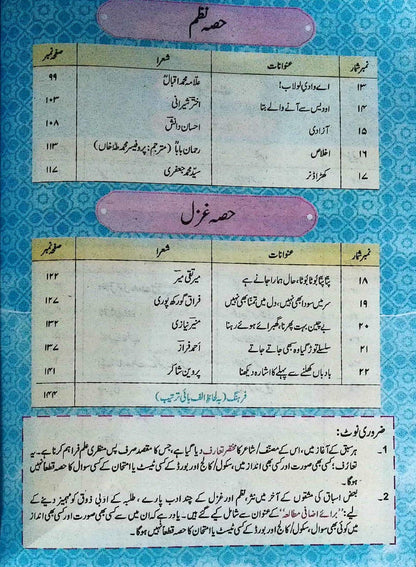 حصہ نظم
نمبر شمار عنوانات شعرا صفحہ نمبر
۱۳ اے وادی لولاب! علامہ محمد اقبالؒ ۹۹
۱۴ او دیس سے آنے والے بتا اختر شیرانی ۱۰۳
۱۵ آزادی احسان دانش ۱۰۸
۱۶ اخلاص رحمان باباؒ (مترجم: پروفیسر محمد طٰہٰ خاں) ۱۱۳
۱۷ کھڑا ڈنر سیّد محمد جعفری ۱۱۷
حصہ غزل
نمبر شمار عنوانات شعرا صفحہ نمبر
۱۸ پتّا پتّا بُوٹا بُوٹا، حال ہمارا جانے ہے میر تقی میر ۱۲۲
۱۹ سر میں سودا بھی نہیں، دل میں تمنّا بھی نہیں فراق گورکھ پوری ۱۲۷
۲۰ بے چین بہت پھرنا، گھبرائے ہوئے رہنا منیر نیازی ۱۳۲
۲۱ سلسلے توڑ گیا وہ سبھی جاتے جاتے احمد فراز ۱۳۷
۲۲ بادباں کھلنے سے پہلے کا اشارہ دیکھنا پروین شاکر ۱۴۱
فرہنگ (بہ لحاظ الف بائی ترتیب) ۱۴۴
ضروری نوٹ:
1۔ ہر سبق کے آغاز میں، اس کے مصنف/شاعر کا مختصر تعارف دیا گیا ہے، جس کا مقصد صرف پس منظری علم فراہم کرنا ہے۔ یہ
تعارف؛ کسی بھی صورت اور کسی بھی انداز میں، سکول/کالج اور بورڈ کے کسی ٹیسٹ یا امتحان کے کسی سوال کا حصہ قطعاً نہیں
ہوگا۔
2۔ بعض اسباق کی مشقوں کے آخر میں نثر، نظم اور غزل کے چند ادب پارے، طلبہ کے ادبی ذوق کو مہمیز دینے کے
لیے: "برائے اضافی مطالعہ" کے عنوان سے شامل کیے گئے ہیں۔ یاد رہے کہ ان میں سے کسی بھی صورت اور کسی بھی انداز
میں کوئی بھی سوال، سکول/کالج اور بورڈ کے کسی ٹیسٹ یا امتحان کا حصہ قطعاً نہیں ہوگا۔